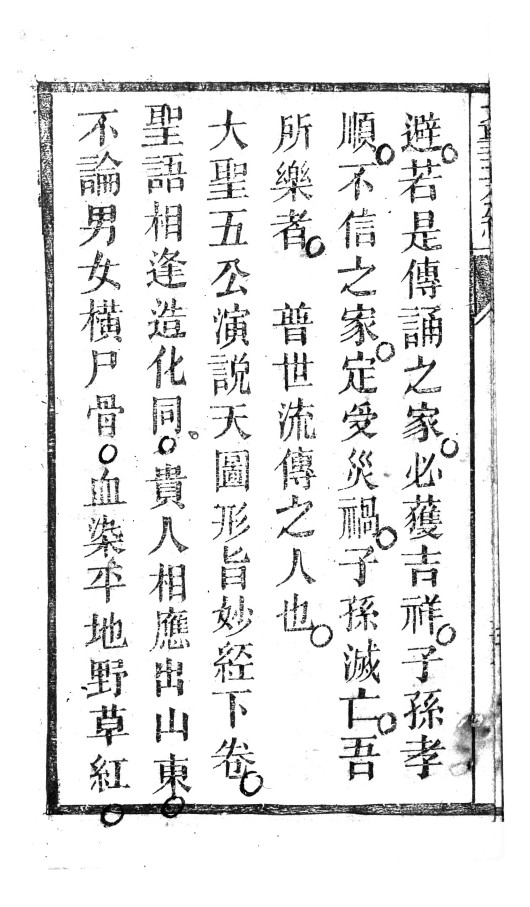 避。若是傳誦之家。必獲吉祥。子孫孝
順。不信之家。定受災禍。子孫滅亡。吾
所樂者。 普世流傳之人也。
大聖五公演說天圖形旨妙經下卷。
聖語相逢造化同。貴人相應出山東。
不論男女橫尸骨。血染平地野草紅。